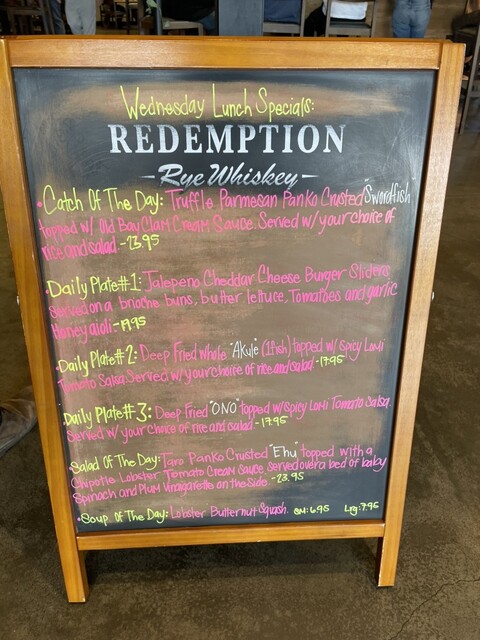 Wednesday Lunch Specials:
REDEMPTION
Rye Whiskey
• Catch Of The Day: Truffle Parmesan Panko Crusted "Swordfish"
topped w/ Old Bay Clam Cream Sauce. Served w/ your choice of
rice and salad - 23.95
Daily Plate #1: Jalepeno Cheddar Cheese Burger Sliders
served on a brioche buns, butter lettuce, Tomatoes and garlic
Honey aioli - 19.95
• Daily Plate #2: Deep Fried whole "Akule" (1 fish) topped w/ Spicy Lomi
Tomato Salsa Served w/ your choice of rice and salad - 17.95
• Daily Plate #3: Deep Fried "ONO" topped w/ Spicy Lomi Tomato Salsa.
Served w/ your choice of rice and salad - 17.95
• Salad Of The Day: Taro Panko Crusted "Ehu" topped with a
Chipotle Lobster Tomato Cream Sauce served over a bed of baby
Spinach and Plum Vinaigarette on the side - 23.95
• Soup Of The Day: Lobster Butternut Squash. SM: 6.95 Lrg: 7.95